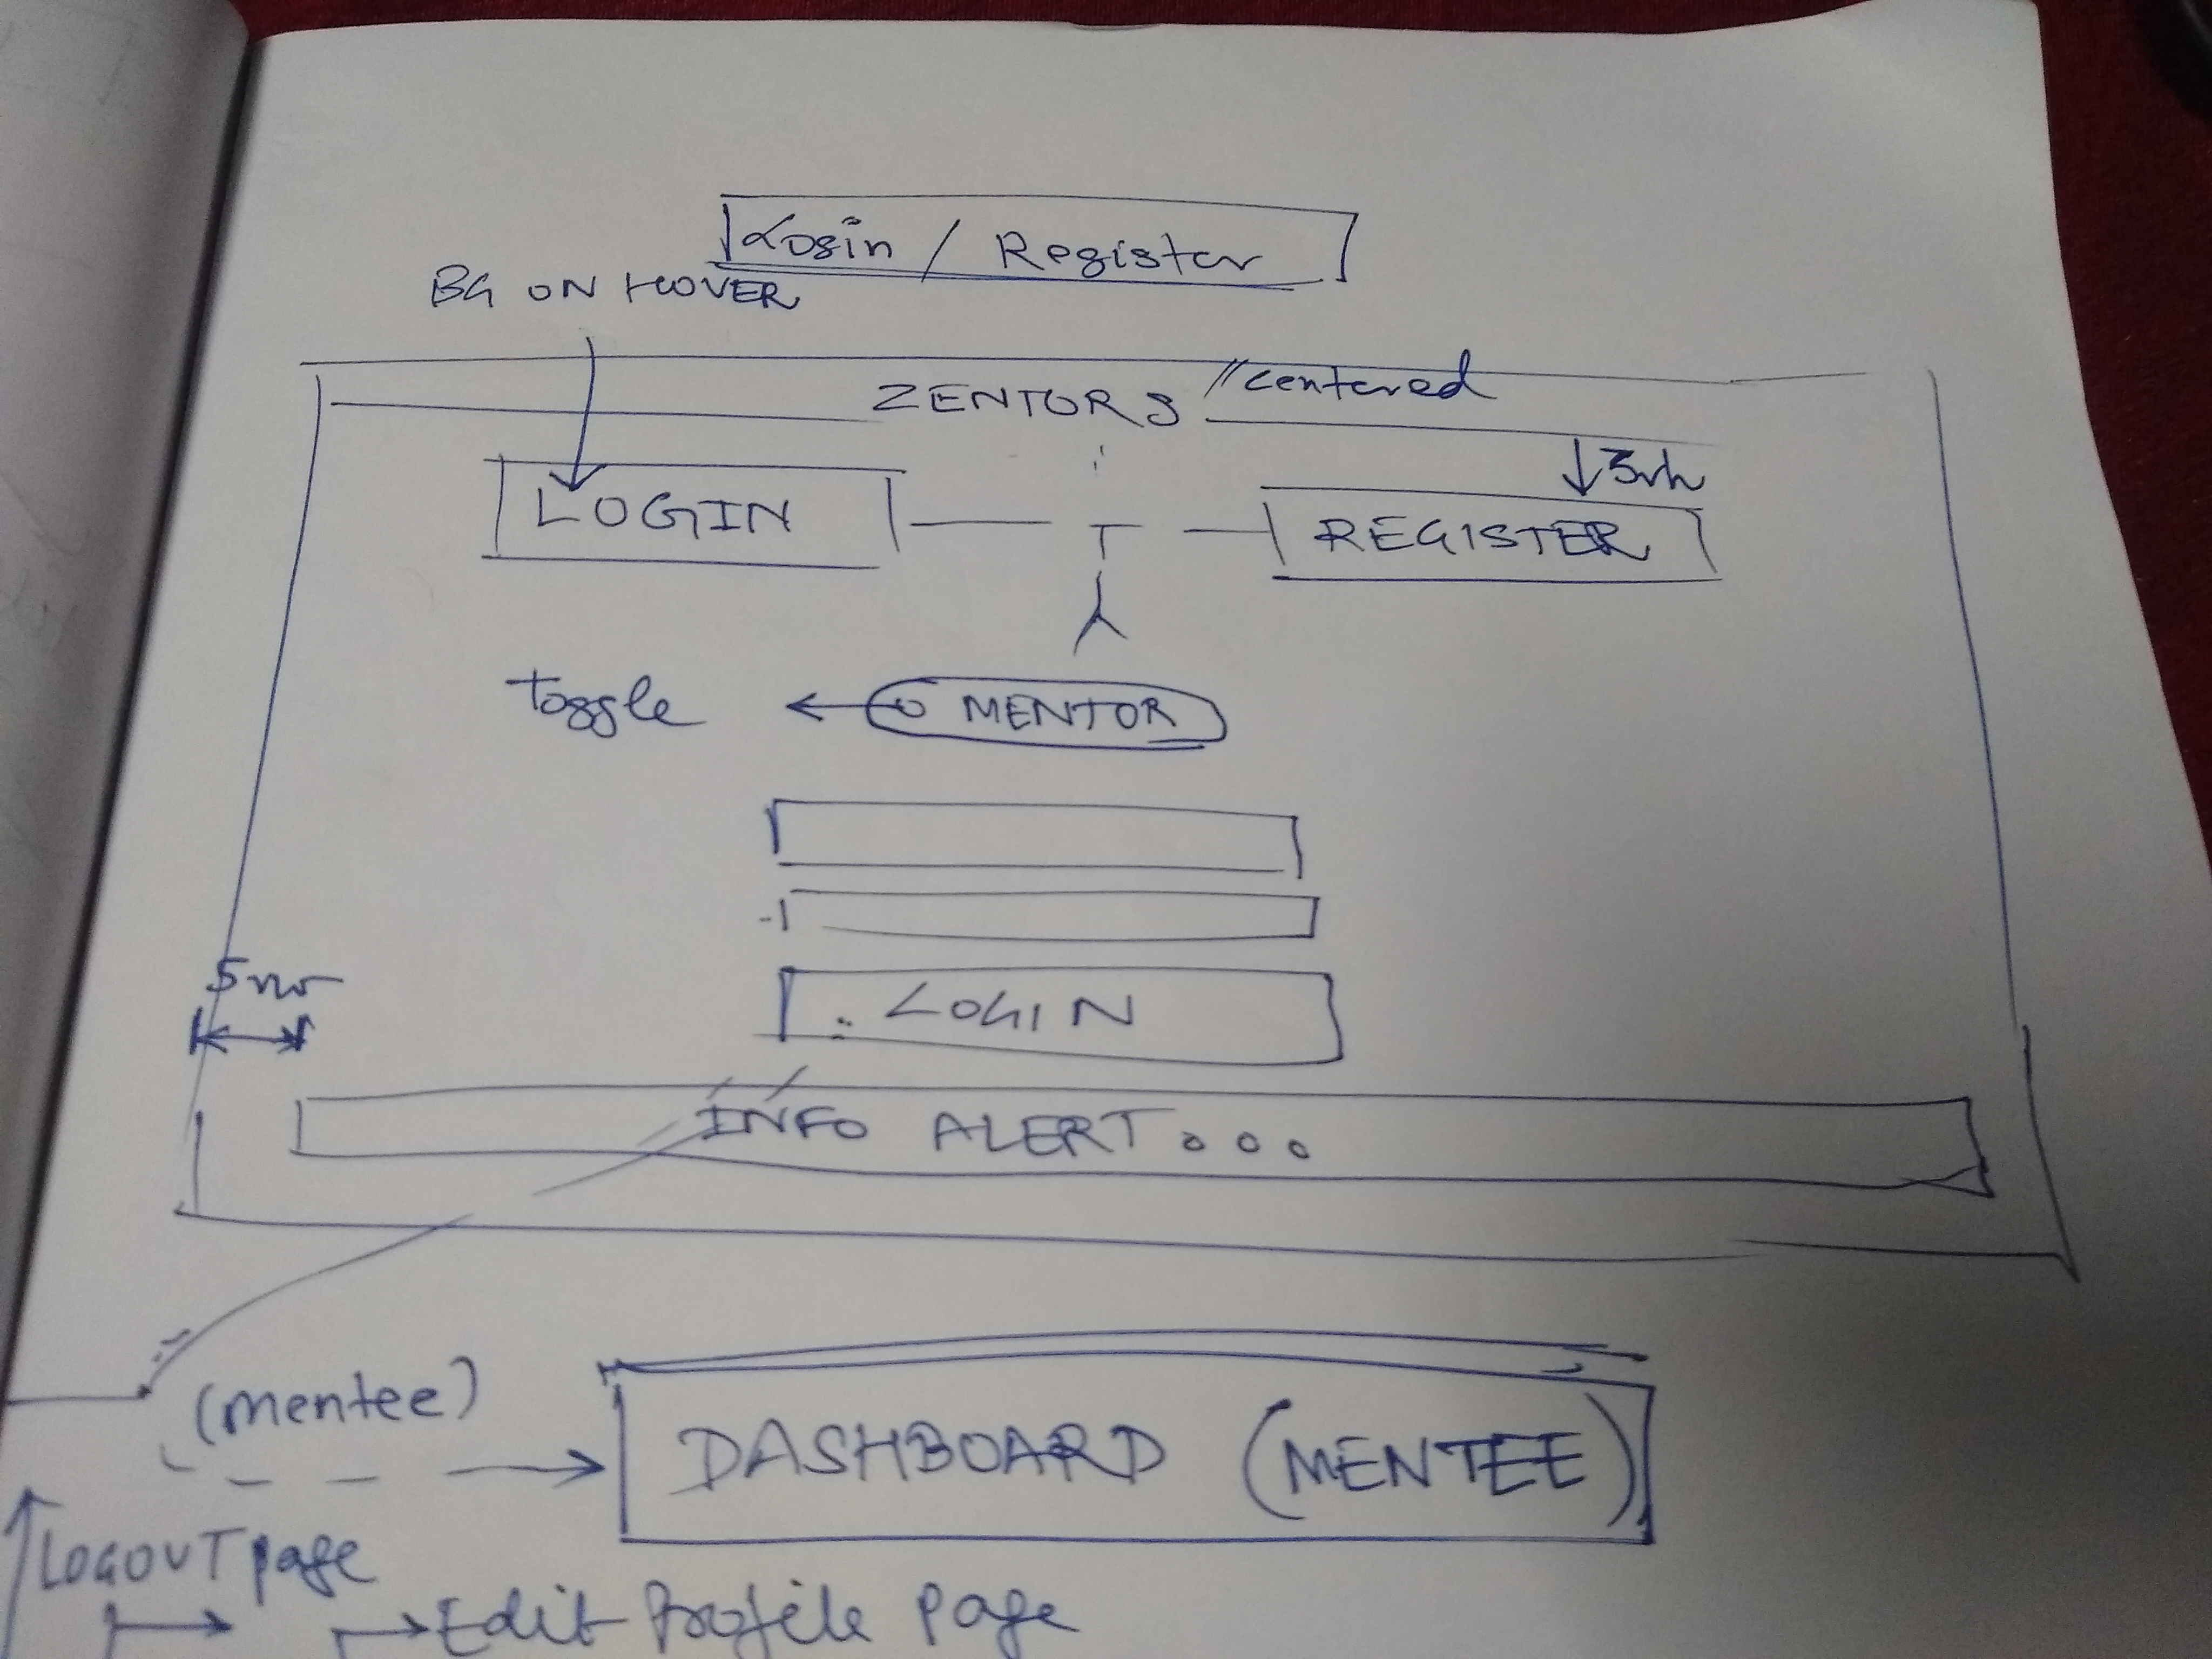 Login / Register
BG ON HOVER
ZENTORS // centered
↓ 3vh
LOGIN
REGISTER
toggle ← MENTOR
5vw
LOGIN
INFO ALERT...
(mentee)
DASHBOARD (MENTEE)
LOGOUT page
Edit Profile page